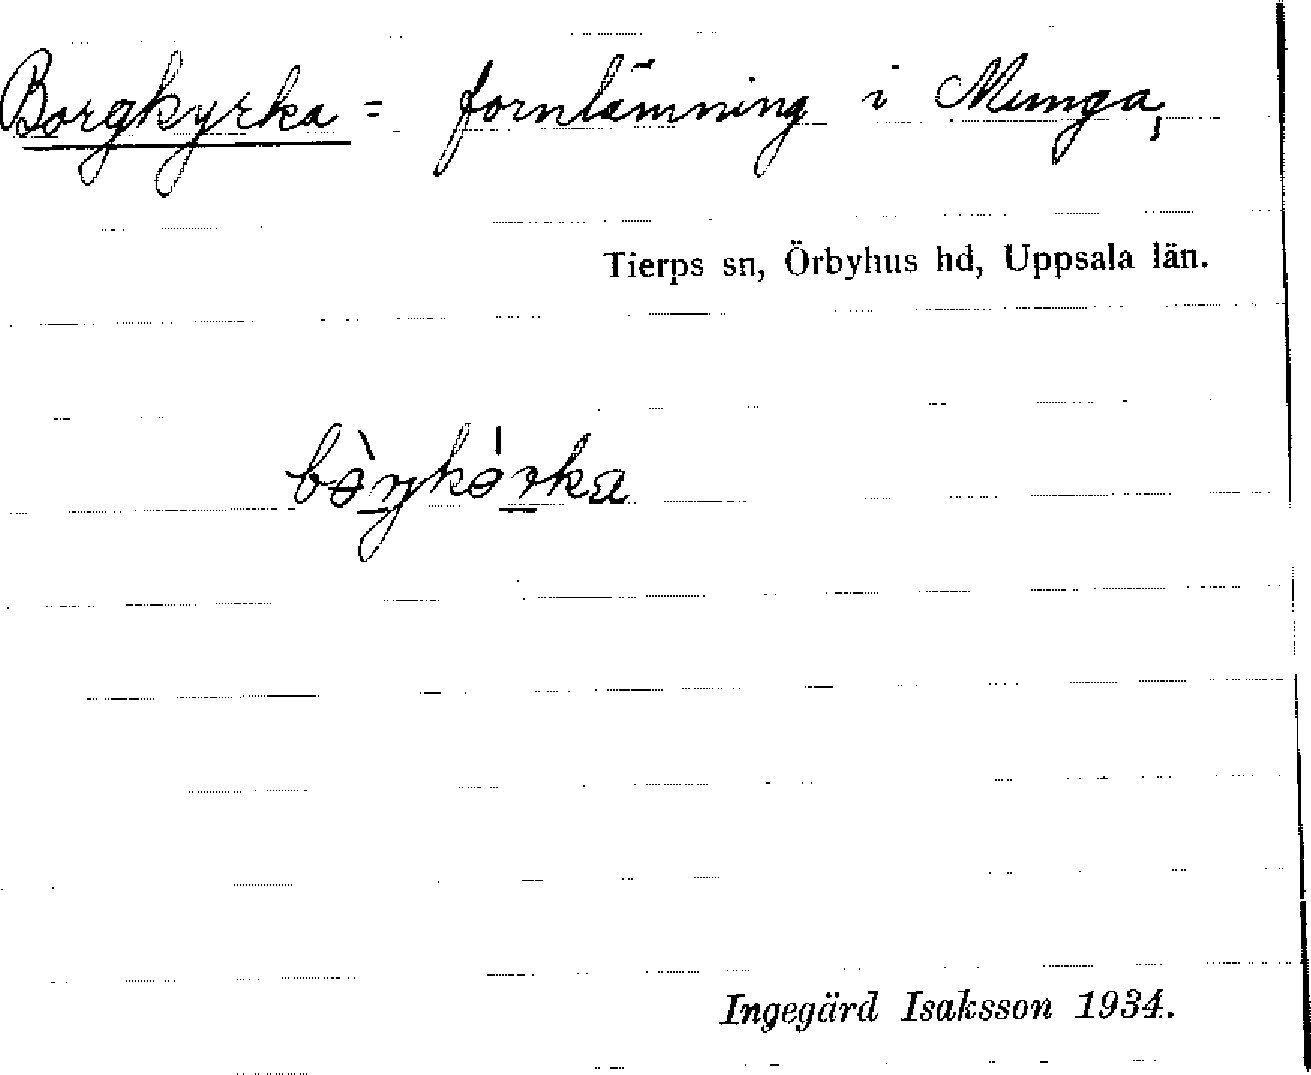 Borgkyrka = fornlämning i Munga,
Tierps sn, Örbyhus hd, Uppsala län.
Ingegärd Isaksson 1934.